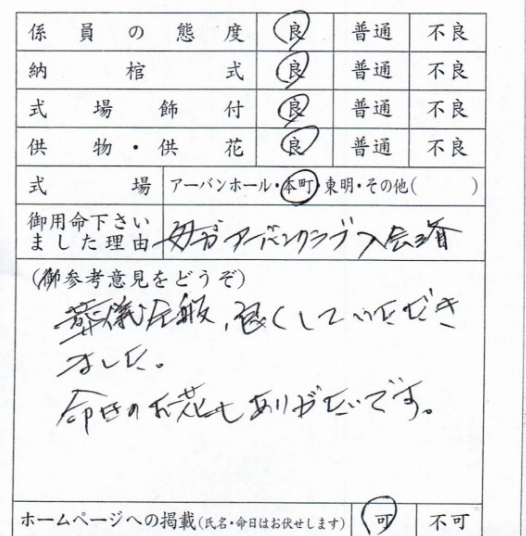 係員の態度 良 普通 不良
納棺式 良 普通 不良
式場飾付 良 普通 不良
供物・供花 良 普通 不良
式場 アーバンホール・本町・東明・その他( )
御用命下さい
ました理由 母がアーバンクラブ入会者
(御参考意見をどうぞ)
葬儀全般、良くしていただき
ました。
命日のお花もありがたいです。
ホームページへの掲載(氏名・命日はお伏せします) 可 不可